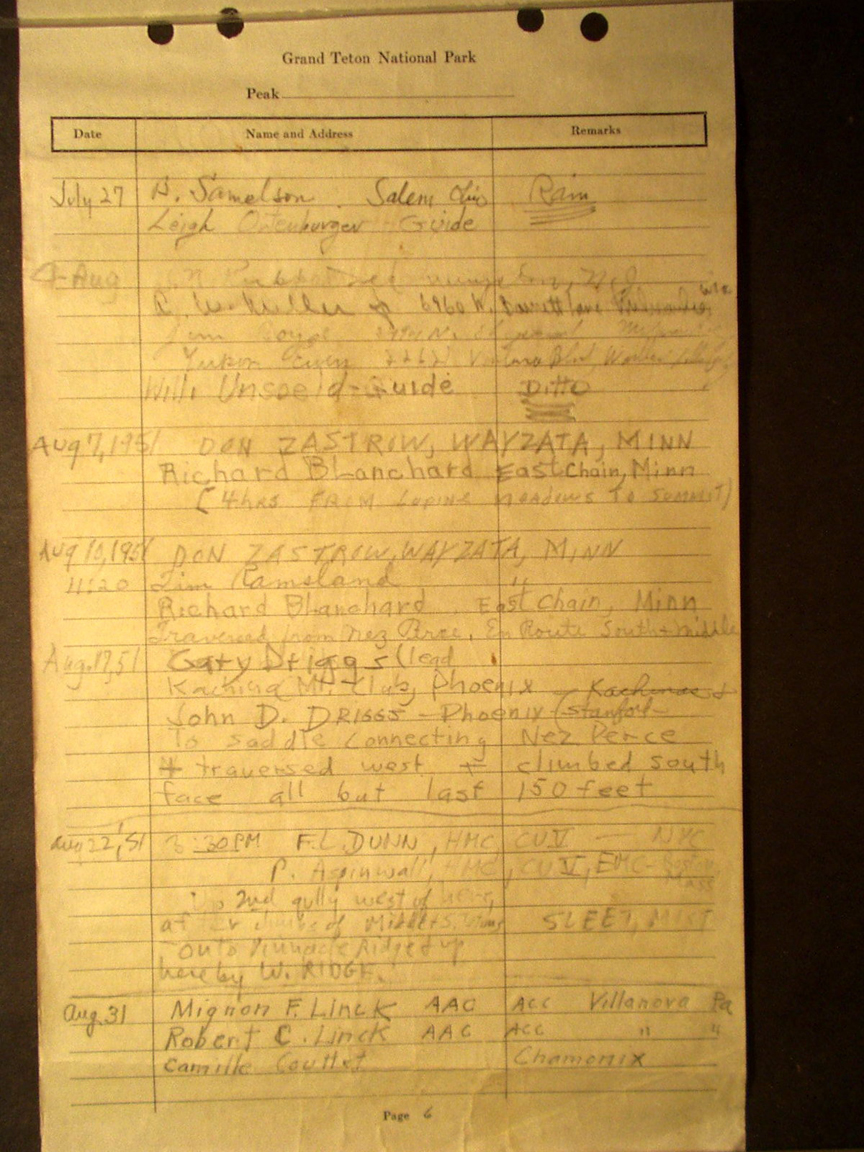 Grand Teton National Park
Peak
Date Name and Address Remarks
July 27 B. Samelson Salem Ohio Rain
Leigh Ortenburger Guide
4 Aug
C. W. Miller Jr 6960 W.
Jim
Willi Unsoeld-Guide Ditto
Aug 7, 1951 DON ZASTROW, WAYZATA, MINN
Richard Blanchard East Chain, Minn
(4 hrs FROM Lupine meadows TO SUMMIT)
Aug 10, 1951 DON ZASTROW, WAYZATA, MINN
11:20 Jim Ramsland "
Richard Blanchard East Chain, Minn
Traversed from Nez Perce, En Route South + Middle
Aug. 17, 51 Gary Driggs (lead
Kachina Mt. Club, Phoenix
John D. DRIGGS - Phoenix (Stanford
To saddle connecting Nez Perce
+ traversed west + climbed south
face all but last 150 feet
Aug 22, '51 3:30PM F.L. DUNN, HMC, CUV — NYC
P. Aspinwall, HMC, CUV, EMC- Boston, Mass
Up 2nd gully west of here,
after climbs of Middle + S. SLEET, MIST
onto Pinnacle Ridge + up
here by W. RIDGE.
Aug. 31 Mignon F. Linck AAC ACC Villanova Pa
Robert C. Linck AAC ACC " "
Camille Couttet Chamonix
Page 6